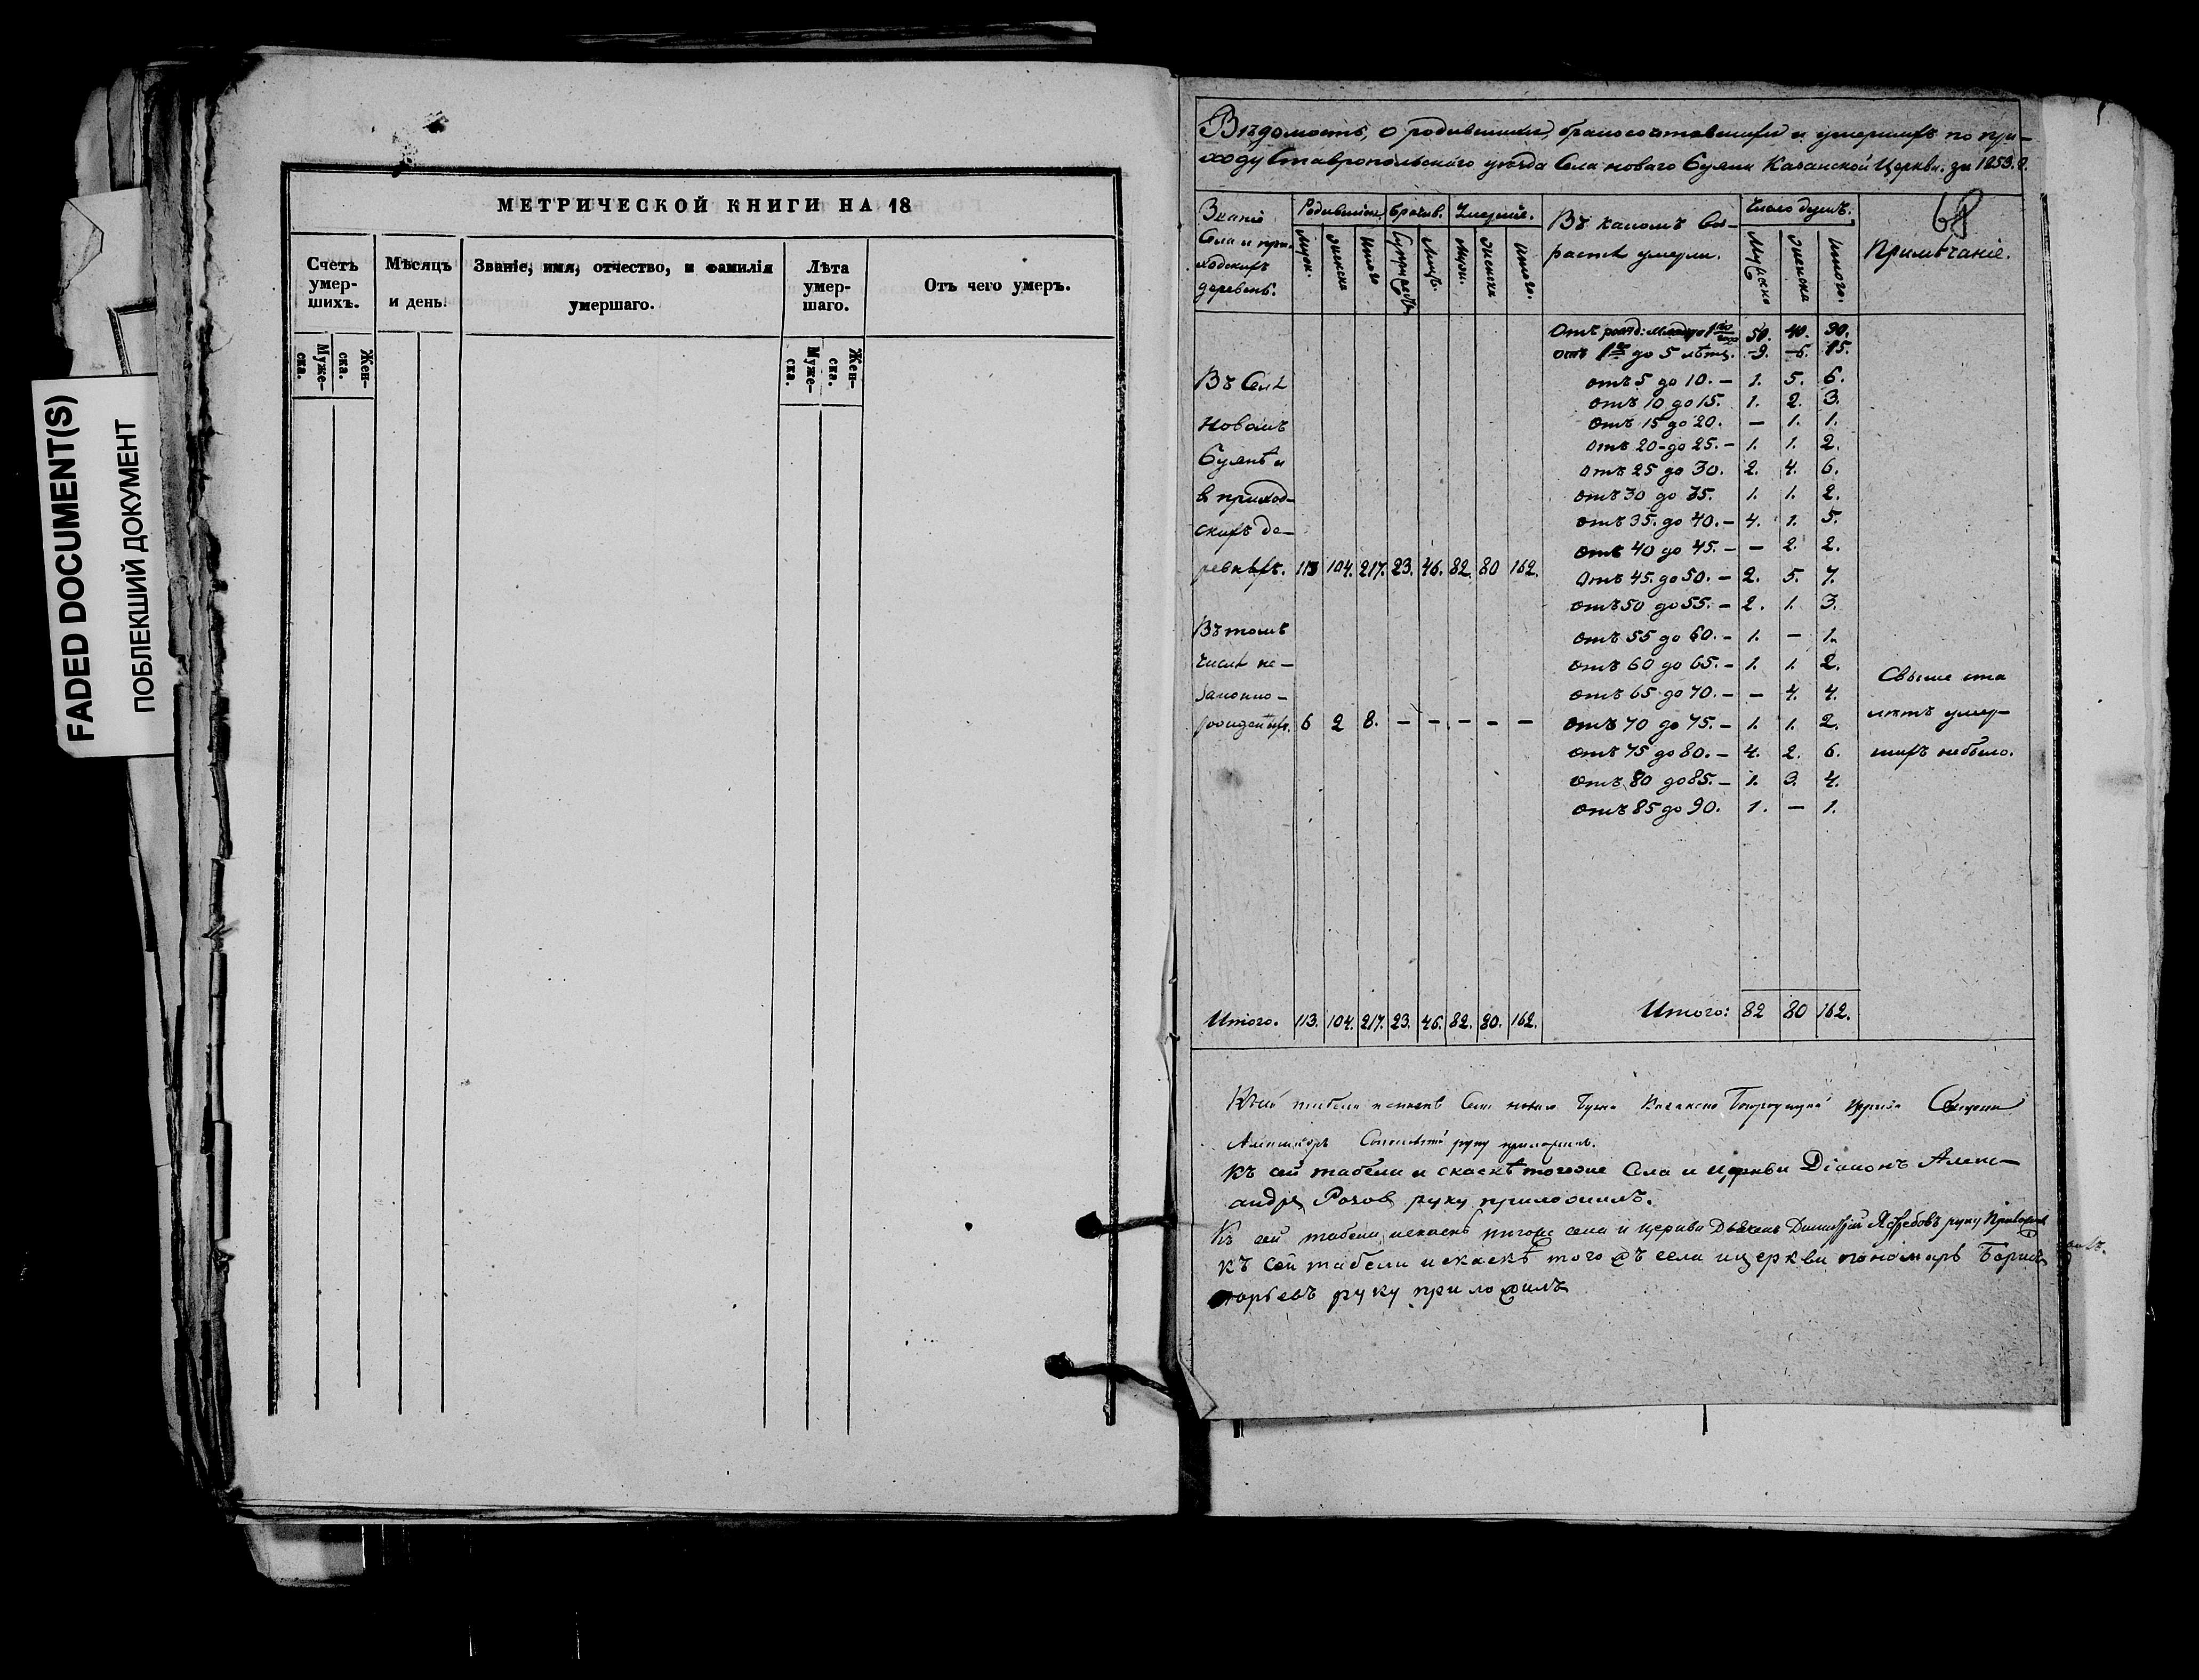 FADED DOCUMENT(S)
ПОБЛЕКШИЙ ДОКУМЕНТ
МЕТРИЧЕСКОЙ КНИГИ НА 18
Счетъ умер- шихъ.
Муже- ска.
Жен- ска.
Мѣсяцъ и день.
Званіе, имя, отчество, и фамилія умершаго.
Лѣта умер- шаго.
Муже- ска.
Жен- ска.
Отъ чего умеръ.
Вѣдомость, о родившихся, бракосочетавшихся и умершихъ по при-
ходу Ставропольскаго уѣзда Села новаго Буяна Казанской Церкви. за 1853. г.
68
Званіе Села и при- ходскихъ деревень.
Родившіеся.
Муж. женска итого
Брачив.
Супружествъ Лицъ.
Умершіе.
Муж. женска итого.
Въ какомъ во- растѣ умерли.
Число душъ.
Мужеска женска итого.
Примѣчаніе.
50. 40. 90.
отъ 1го до 5 лѣтъ. - 9. - 6. 15.
отъ 5 до 10. - 1. 5. 6.
отъ 10 до 15. 1. 2. 3.
отъ 15 до 20. - 1. 1.
отъ 20 до 25. - 1. 1. 2.
отъ 25 до 30. 2. 4. 6.
отъ 30 до 35. 1. 1. 2.
отъ 35. до 40. - 4. 1. 5.
отъ 40 до 45. - - 2. 2.
отъ 45. до 50. - 2. 5. 7.
отъ 50 до 55. - 2. 1. 3.
отъ 55 до 60. - 1. - 1.
отъ 60 до 65. - 1. 1. 2.
отъ 65 до 70. - - 4. 4.
отъ 70 до 75. - 1. 1. 2.
отъ 75 до 80. - 4. 2. 6.
отъ 80 до 85. - 1. 3. 4.
отъ 85 до 90. 1. - 1.
Въ Селѣ
Новомъ
Буянѣ и
в приход-
скихъ де-
ревняхъ. 113 104. 217. 23. 46. 82. 80 162.
Въ томъ
числѣ не-
законно-
рожденныхъ. 6 2 8. - - - - -
Свыше ста
лѣтъ умер-
шихъ небыло.
Итого. 113. 104. 217. 23. 46. 82. 80. 162.
Итого: 82 80 162.
Къ сей табели и скаскѣ Села новаго Буяна Казанско Богородицкой Церкви Священникъ
Александръ руку приложилъ.
Къ сей табели и скаскѣ тогоже Села и церкви Діаконъ Алекс-
андръ Розов руку приложилъ.
Къ сей табели искаскѣ тогоже села и церкви Дьячекъ Димитрій Ястребовъ руку Приложилъ
Къ сей табели искаскѣ того жъ села ицеркви пономарь Борисъ
руку приложилъ